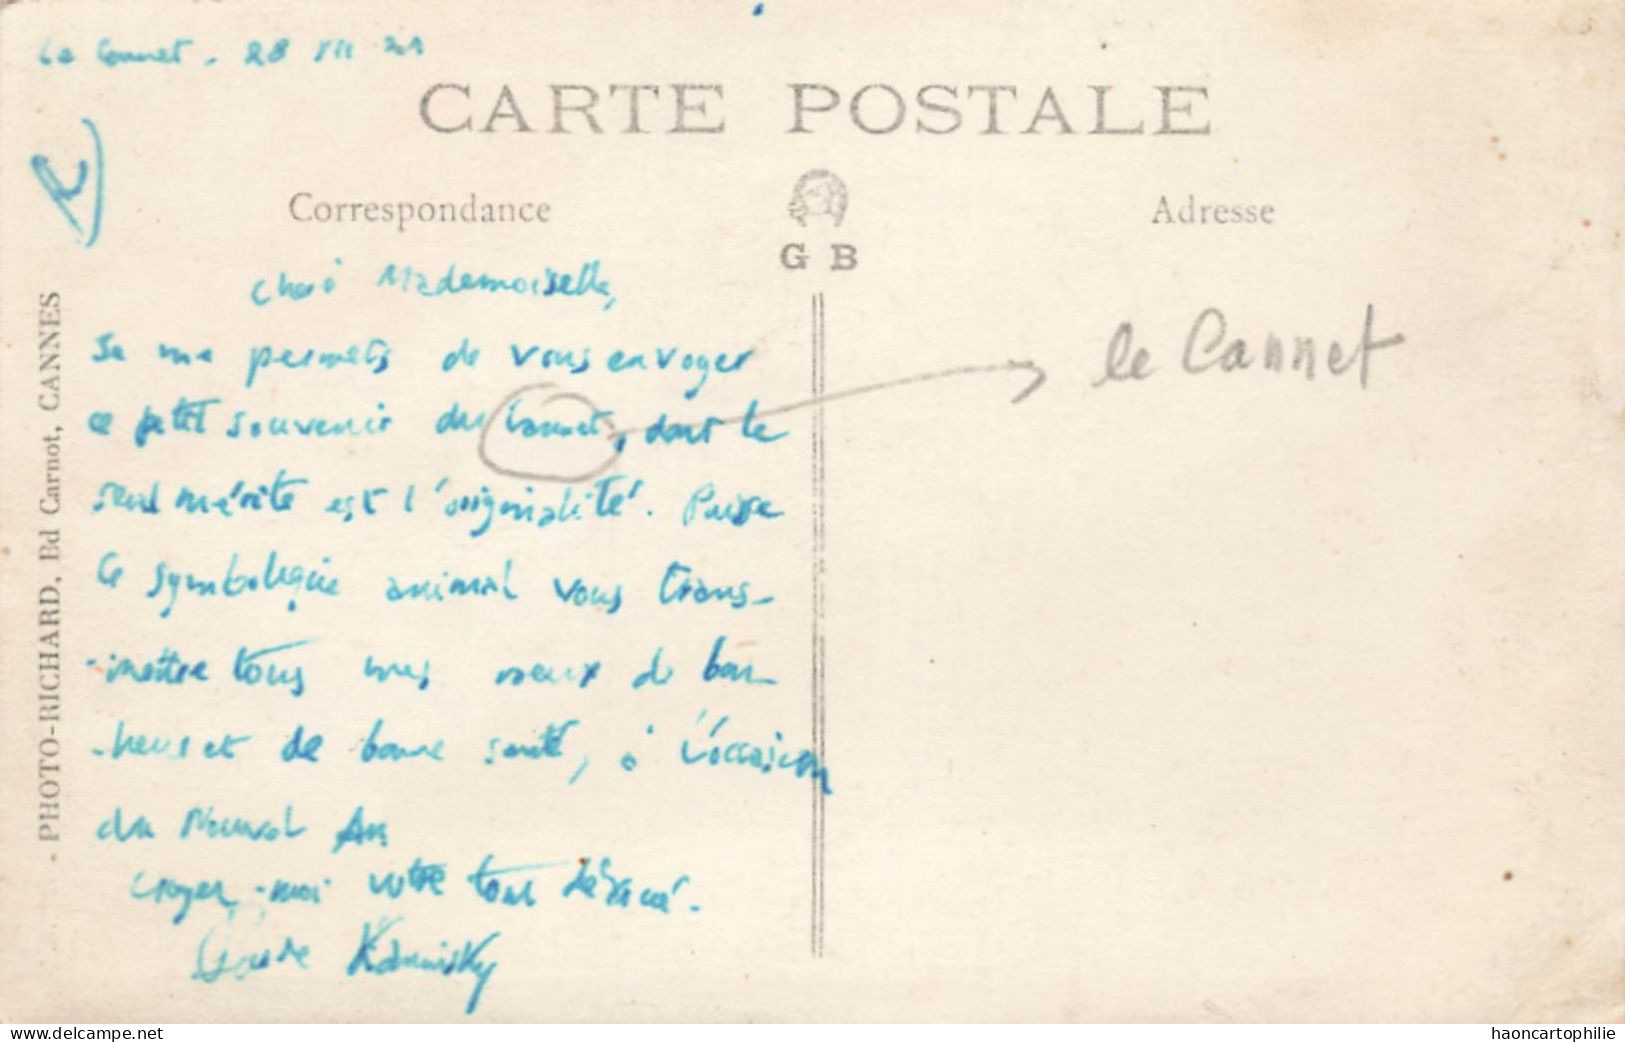 Le Cannet, 28 XII
CARTE POSTALE
Correspondance
Adresse
G B
PHOTO-RICHARD, Bd Carnot, CANNES
Chère Mademoiselle,
Je me permets de vous envoyer
ce petit souvenir du Cannet, dont le
seul mérite est l'originalité. Puisse
ce symbolique animal vous trans-
-mettre tous mes vœux de bon-
-heur et de bonne santé, à l'occasion
du Nouvel An
Croyez-moi votre tout dévoué.
Claude Kaminsky
le Cannet
www.delcampe.net
haoncartophilie